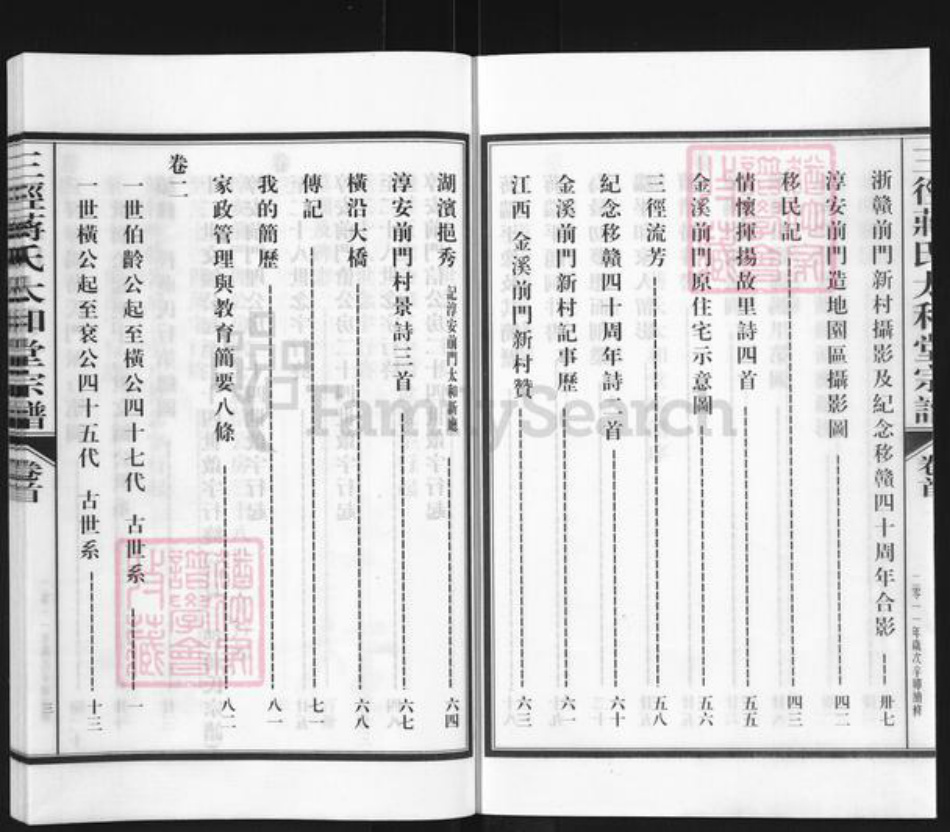 三徑蔣氏太和堂宗譜
卷首
二零一一年歲次辛卯續修
浙贛前門新村攝影及紀念移贛四十周年合影 卅七
淳安前門造地園區攝影圖 四二
移民記 四三
情懷揮揚故里詩四首 五五
金溪前門原住宅示意圖 五六
三徑流芳 五八
紀念移贛四十周年詩二首 六十
金溪前門新村記事歷 六一
江西 金溪前門新村贊 六三
湖濱挹秀 記淳安前門太和新 六四
淳安前門村景詩三首 六七
橫沿大橋 六八
傳記 七一
我的簡歷 八一
家政管理與教育簡要八條 八二
卷二
一世伯齡公起至橫公四十七代 古世系 一
一世橫公起至袞公四十五代 古世系 十三
三徑蔣氏太和堂宗譜
卷首
三
FamilySearch